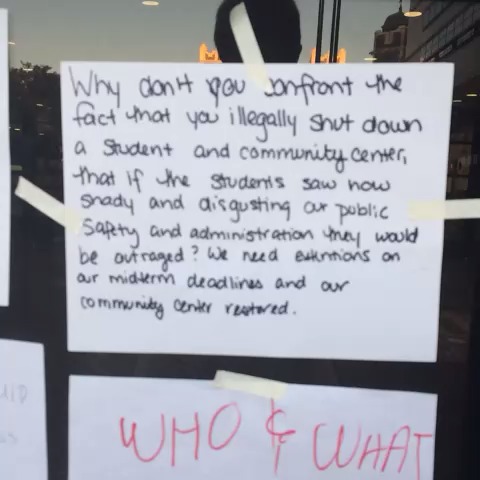 Why don't you confront the
fact that you illegally shut down
a student and community center,
that if the students saw how
shady and disgusting our public
safety and administration they would
be outraged? We need extintions on
our midterm deadlines and our
community center restored.
WHO & WHAT